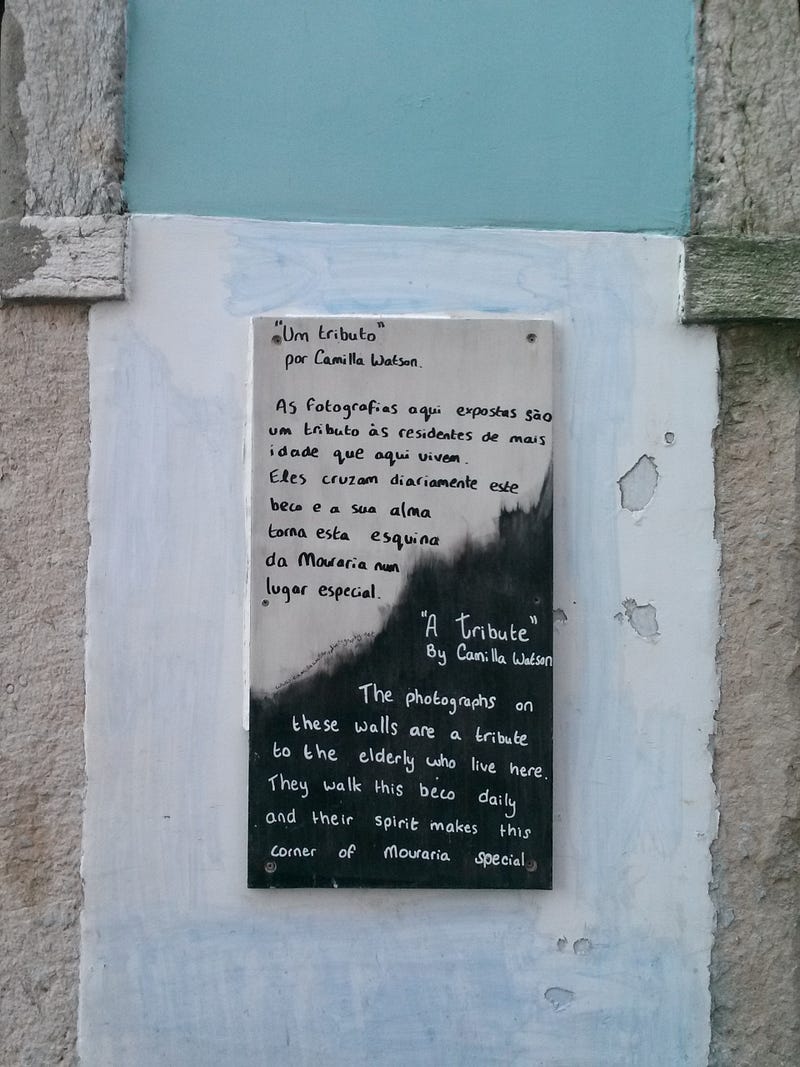 "Um tributo"
por Camilla Watson.
As fotografias aqui expostas são
um tributo às residentes de mais
idade que aqui vivem.
Eles cruzam diariamente este
beco e a sua alma
torna esta esquina
da Mouraria num
lugar especial.
"A Tribute"
By Camilla Watson
The photographs on
these walls are a tribute
to the elderly who live here.
They walk this beco daily
and their spirit makes this
corner of Mouraria special